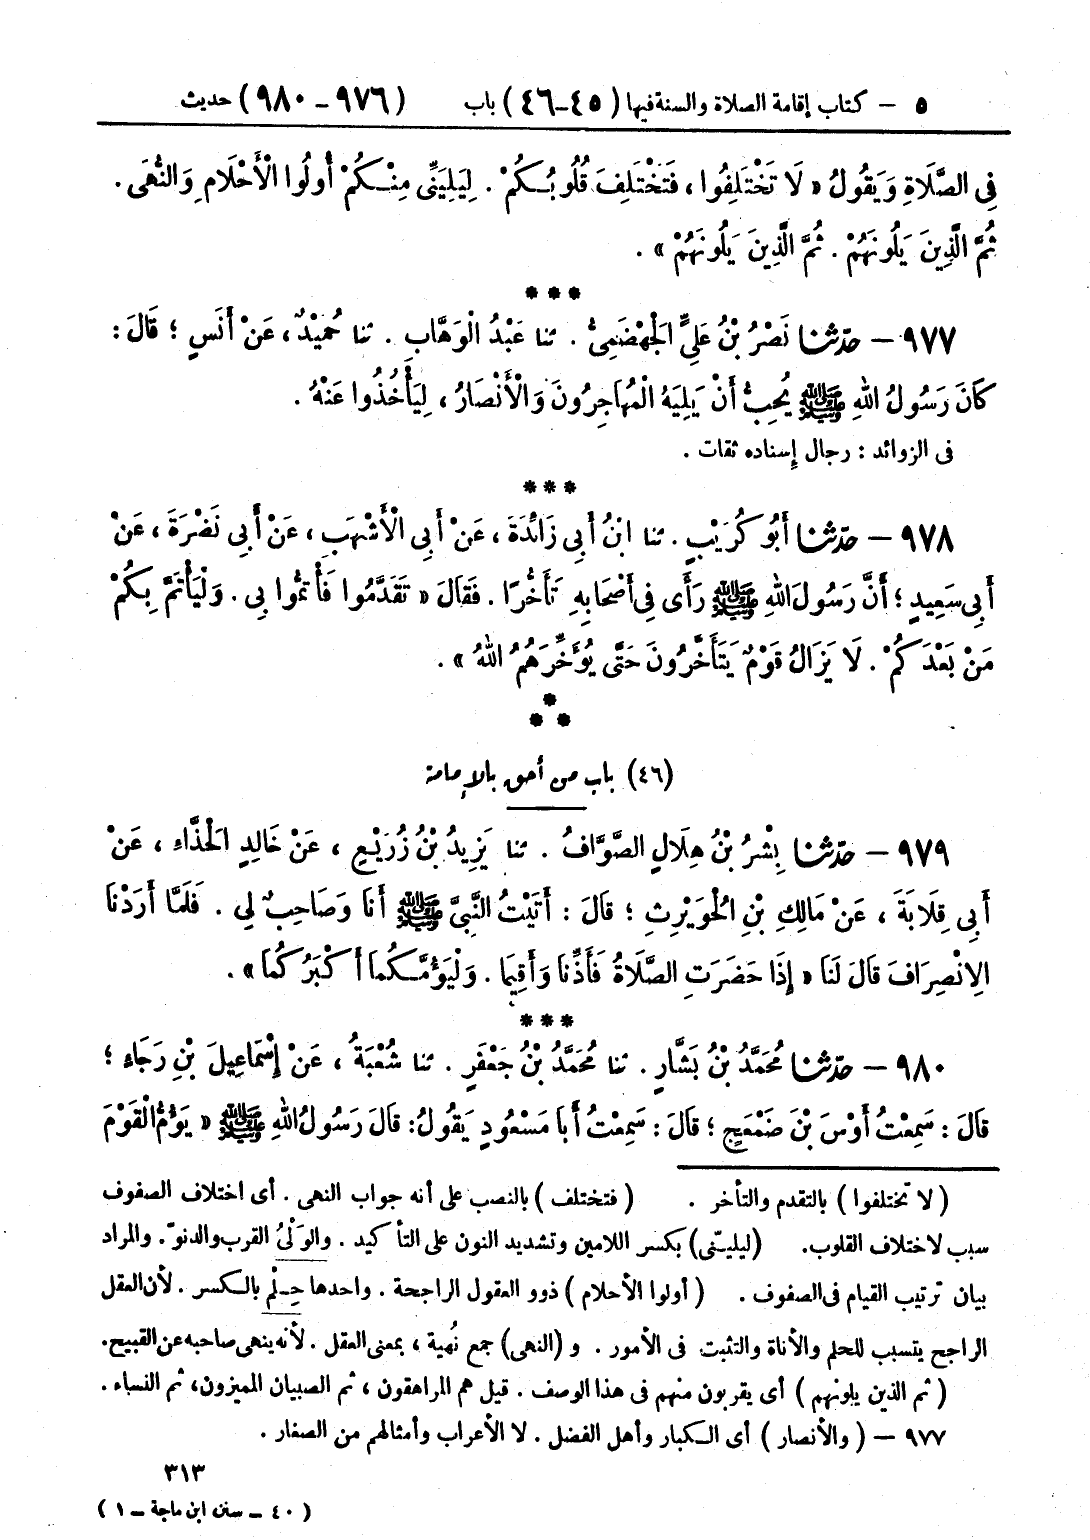 ٥ – كتاب إقامة الصلاة والسنة فيها (٤٥–٤٦) باب (٩٧٦–٩٨٠) حديث
فِى الصَّلَاةِ وَيَقُولُ « لَا تَخْتَلِفُوا ، فَتَخْتَلِفَ قُلُوبُكُمْ . لِيَلِيَنِّى مِنْكُمْ أُولُوا الْأَحْلَامِ وَالنُّهَى .
ثُمَّ الَّذِينَ يَلُونَهُمْ . ثُمَّ الَّذِينَ يَلُونَهُمْ » .
***
٩٧٧ – حدّثنا نَصْرُ بْنُ عَلِىٍّ الْجَهْضَمِىُّ . ثنا عَبْدُ الْوَهَّابِ . ثنا حُمَيْدٌ ، عَنْ أَنَسٍ ؛ قَالَ :
كَانَ رَسُولُ اللهِ ﷺ يُحِبُّ أَنْ يَلِيَهُ الْمُهَاجِرُونَ وَالْأَنْصَارُ ، لِيَأْخُذُوا عَنْهُ .
فى الزوائد : رجال إسناده ثقات .
***
٩٧٨ – حدّثنا أَبُو كُرَيْبٍ . ثنا ابْنُ أَبِى زَائِدَةَ ، عَنْ أَبِى الْأَشْهَبِ ، عَنْ أَبِى نَضْرَةَ ، عَنْ
أَبِى سَعِيدٍ ؛ أَنَّ رَسُولَ اللهِ ﷺ رَأَى فِى أَصْحَابِهِ تَأَخُّرًا . فَقَالَ « تَقَدَّمُوا فَأْتَمُّوا بِى . وَلْيَأْتَمَّ بِكُمْ
مَنْ بَعْدَكُمْ . لَا يَزَالُ قَوْمٌ يَتَأَخَّرُونَ حَتَّى يُؤَخِّرَهُمُ اللهُ » .
*
* *
(٤٦) باب من أحق بالإمامة
٩٧٩ – حدّثنا بِشْرُ بْنُ هِلَالٍ الصَّوَّافُ . ثنا يَزِيدُ بْنُ زُرَيْعٍ ، عَنْ خَالِدٍ الْحَذَّاءِ ، عَنْ
أَبِى قِلَابَةَ ، عَنْ مَالِكِ بْنِ الْحُوَيْرِثِ ؛ قَالَ : أَتَيْتُ النَّبِىَّ ﷺ أَنَا وَصَاحِبٌ لِى . فَلَمَّا أَرَدْنَا
الِانْصِرَافَ قَالَ لَنَا « إِذَا حَضَرَتِ الصَّلَاةُ فَأَذِّنَا وَأَقِيمَا . وَلْيَؤُمَّكُمَا أَكْبَرُكُمَا » .
***
٩٨٠ – حدّثنا مُحَمَّدُ بْنُ بَشَّارٍ . ثنا مُحَمَّدُ بْنُ جَعْفَرٍ . ثنا شُعْبَةُ ، عَنْ إِسْمَاعِيلَ بْنِ رَجَاءٍ ؛
قَالَ : سَمِعْتُ أَوْسَ بْنَ ضَمْعَجٍ ؛ قَالَ : سَمِعْتُ أَبَا مَسْعُودٍ يَقُولُ: قَالَ رَسُولُ اللهِ ﷺ « يَؤُمُّ الْقَوْمَ
( لا تختلفوا ) بالتقدم والتأخر . ( فتختلف ) بالنصب على أنه جواب النهى . أى اختلاف الصفوف
سبب لاختلاف القلوب. (ليلينّى) بكسر اللامين وتشديد النون على التأكيد . والوَلْىُ القرب والدنوّ . والمراد
بيان ترتيب القيام فى الصفوف . ( أولوا الأحلام ) ذوو العقول الراجحة . واحدها حِلْم بالكسر . لأن العقل
الراجح يتسبب للحلم والأناة والتثبت فى الأمور . و (النهى) جمع نُهية ، بمعنى العقل . لأنه ينهى صاحبه عن القبيح.
( ثم الذين يلونهم ) أى يقربون منهم فى هذا الوصف . قيل هم المراهقون ، ثم الصبيان المميزون، ثم النساء .
٩٧٧ – ( والأنصار ) أى الكبار وأهل الفضل . لا الأعراب وأمثالهم من الصغار .
٣١٣
( ٤٠ – سنن ابن ماجة – ١ )